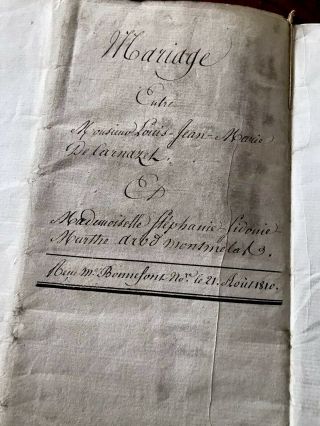 Mariage
Entre
Monsieur Louis-Jean-Marie
De Carnazet.
Et
Mademoiselle Stéphanie-Sidonie
Marthe
Reçu Me. Bonnefont Nore. le 21. Août 1810.